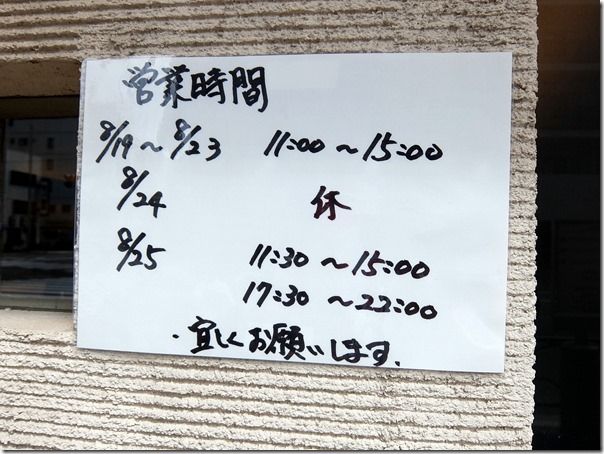 営業時間
8/19～8/23 11:00～15:00
8/24 休
8/25 11:30～15:00
17:30～22:00
・宜しくお願いします.